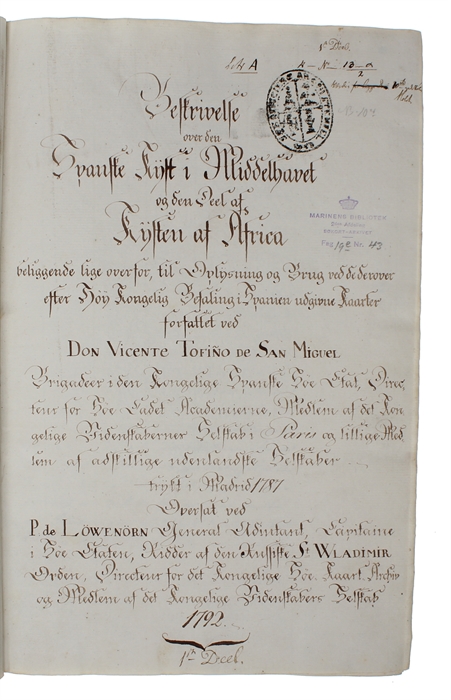 1ste Deel.
Litr A
K - No 13-a
2
MARINENS BIBLIOTEK
Fag 142 No. 43
Beskrivelse
over den
Spanske Kyst i Middelhavet
og den Deel af
Kysten af Africa
beliggende lige overfor, til Oplysning og Brug ved de derover
efter Höy Kongelig Befaling i Spanien udgivne Kaarter
forfattet ved
DON VICENTE TOFIÑO DE SAN MIGUEL
Brigadeer i den Kongelige Spanske Söe Etat, Direc-
teur for Söe Cadet Academierne, Medlem af det Kon-
gelige Videnskabernes Selskab i Paris og tillige Med-
lem af adskillige udenlandske Selskaber
trykt i Madrid 1787
Oversat ved
P. de LÖWENÖRN General Adjutant, Capitaine
i Söe Etaten, Ridder af den Russiske St. WLADIMIR
Orden, Directeur for det Kongelige Söe-Kaart-Archiv
og Medlem af det Kongelige Videnskabers Selskab
1792.
1ste Deel.